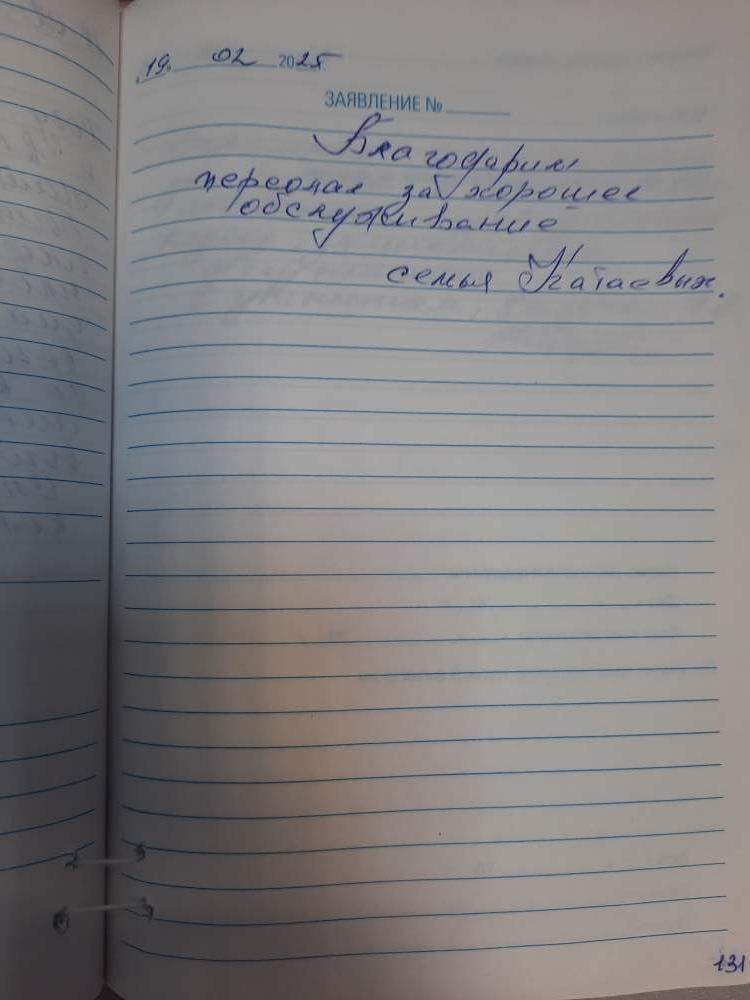 19. 02 2025
ЗАЯВЛЕНИЕ № ________
Благодарим
персонал за хорошее
обслуживание
семья Катаевых.
131